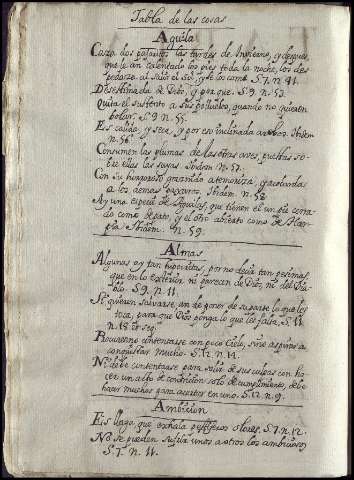 Tabla de las cosas
Aguila
Caza dos paxaros las tardes de Invierno, y despues
que le an calentado los pies toda la noche, los des
pedaza al salir el Sol, y se los come. S. 7. n. 41.
Desestimada de Dios, y por que. S. 9. n. 53.
Quita el sustento a sus polluelos, quando no quieren
bolar. S. 9. n. 55.
Es calida, y seca, y por eso inclinada a Ibidem
n. 56.
Consumen las plumas de las otras aves, puestas so-
bre ellas las suyas. Ibidem n. 57.
Con su graznido atemoriza, y acobarda
a los demas paxaros. Ibidem. n. 58
Ay una especie de Aguilas, que tienen el un pie cerra
do como de pato, y el otro abierto como de Har-
pia. Ibidem. n. 59.
Almas
Algunas ay tan hipocritas, por no decir tan pesimas,
que en lo exterior ni parecen de Dios, ni del Dia-
blo. S. 9. n. 11.
Si quieren salvarse, an de poner de su parte lo que les
toca, para que Dios ponga lo que les falta. S. 11.
n. 18. et seq.
Procuren no contentarse con poco Cielo, sino aspirar a
conquistar mucho. S. 12. n. 14.
No debe contentarse para salir de sus culpas con ha-
cer un acto de contricion solo de cumplimiento, debe
hacer muchos para acertar en uno. S. 12. n. 9.
Ambicion
Es llaga, que exhala pestiferos olores. S. 7. n. 12.
No se pueden sufrir unos a otros los ambiciosos
S. 7. n. 11.